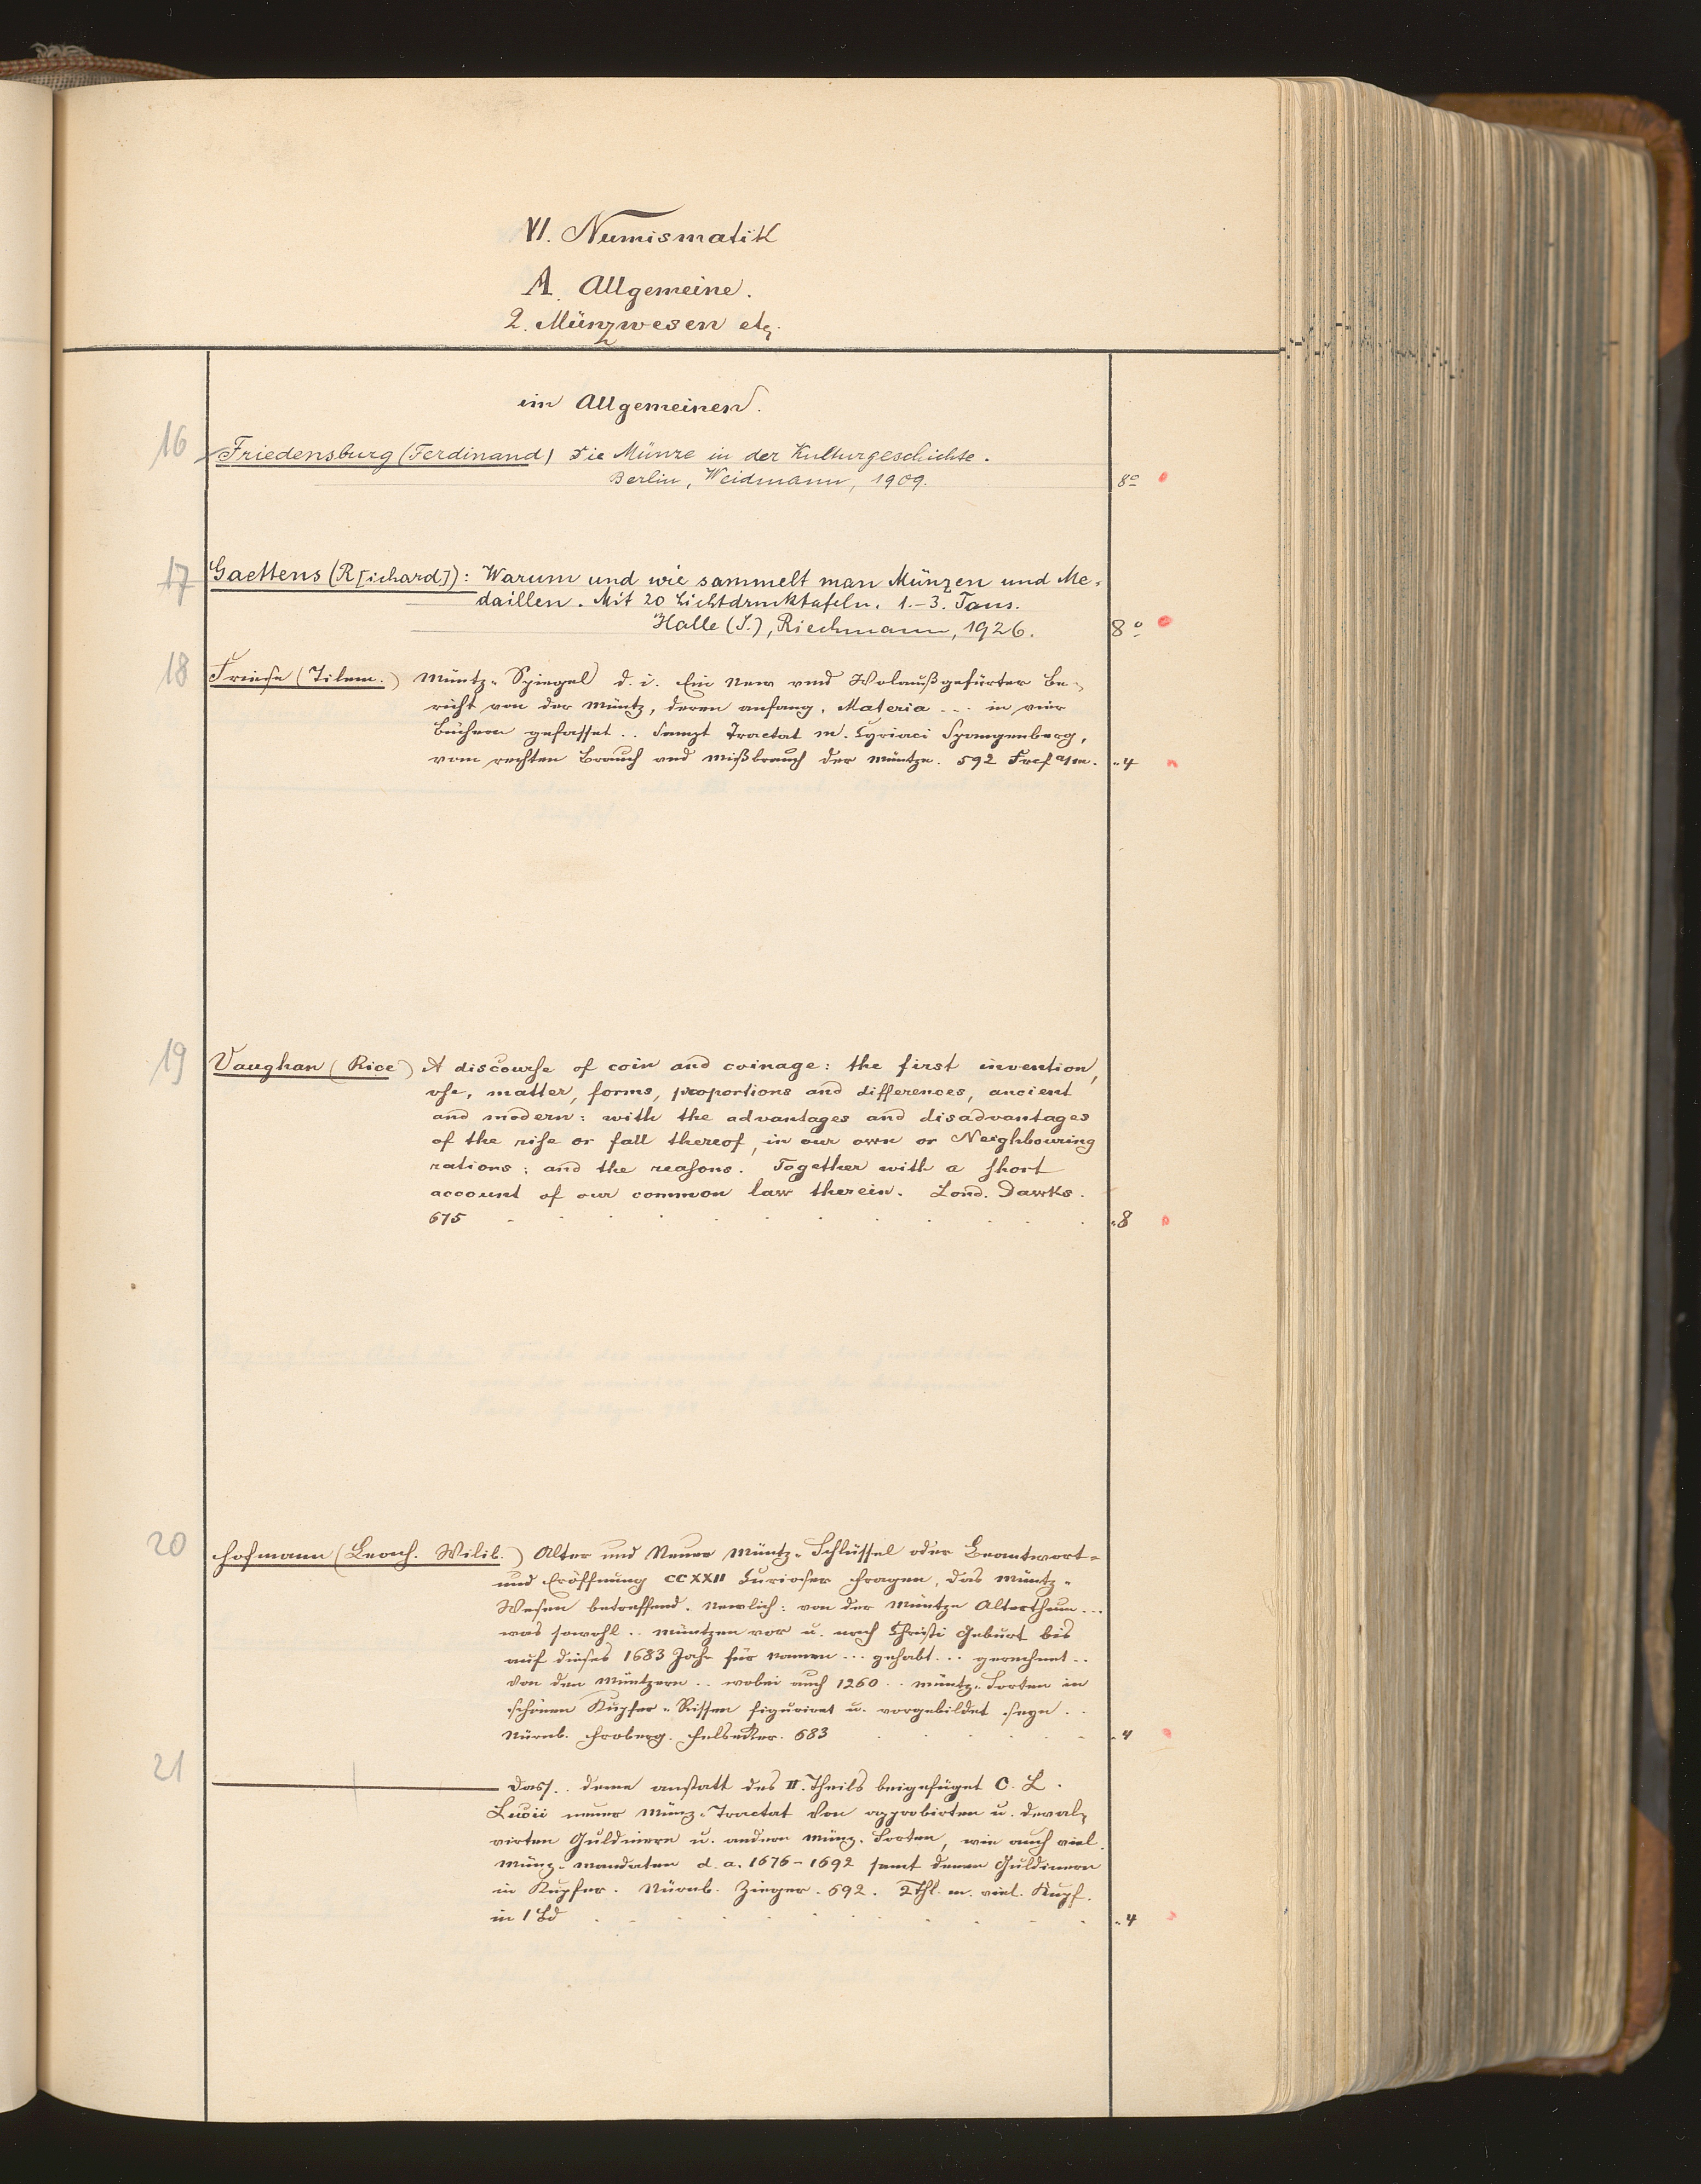 VI. Numismatik
A. Allgemeine.
2. Münzwesen etz.
im Allgemeinen.
16 Friedensburg (Ferdinand) Die Münze in der Kulturgeschichte.
Berlin, Weidmann, 1909. 8°
17 Gaettens (R[ichard]): Warum und wie sammelt man Münzen und Me-
daillen. Mit 20 Lichtdrucktafeln. 1.-3. Taus.
Halle (S.), Riechmann, 1926. 8°
18 Friese (Tilem.) Müntz-Spiegel d. i. Ein New vnd Wolaußgefürter Be-
richt von der Müntz, deren anfang, Materia ... in vier
Büchern gefasset .. Sampt Tractat M. Cyriaci Spangenberg,
vom rechten Brauch und Mißbrauch der Müntze. 592 Frcf a/m. „ 4
19 Vaughan (Rice) A discourse of coin and coinage: the first invention,
vse, matter, forms, proportions and differences, ancient
and modern: with the advantages and disadvantages
of the rise or fall thereof, in our own or Neighbouring
nations: and the reasons. Together with a short
account of our common law therein. Lond. Dawks.
675 „ 8
20 Hofmann (Leonh. Wilib.) Alter und Neuer Müntz-Schlüssel oder Beantwort-
und Eröffnung CCXXII Curioser Fragen, das Müntz-
Wesen betreffend. Nemlich: von der Müntze Alterthum ...
was sowohl .. Müntzen vor u. nach Christi Geburt bis
auf dieses 1683 Jahr für Namen ... gehabt ... gerechnet ..
Von den Müntzern .. wobei auch 1260 .. Müntz-Sorten in
schönen Kupfer-Rissen figuriret u. vorgebildet seyn ..
Nürnb. Froberg. Felsecker. 683 „ 4
21 Dass. .. deme anstatt des II. Theils beigefüget C. L.
Lucii neuer Münz-Tractat Von approbirten u. deval-
virten Guldinern u. andern Münz-Sorten, wie auch viel
Münz-Mandaten d. a. 1676-1692 samt denen Guldinern
in Kupfer. Nürnb. Zieger. 692. 2 Thl. m. viel. Kupf.
in 1 Bd „ 4